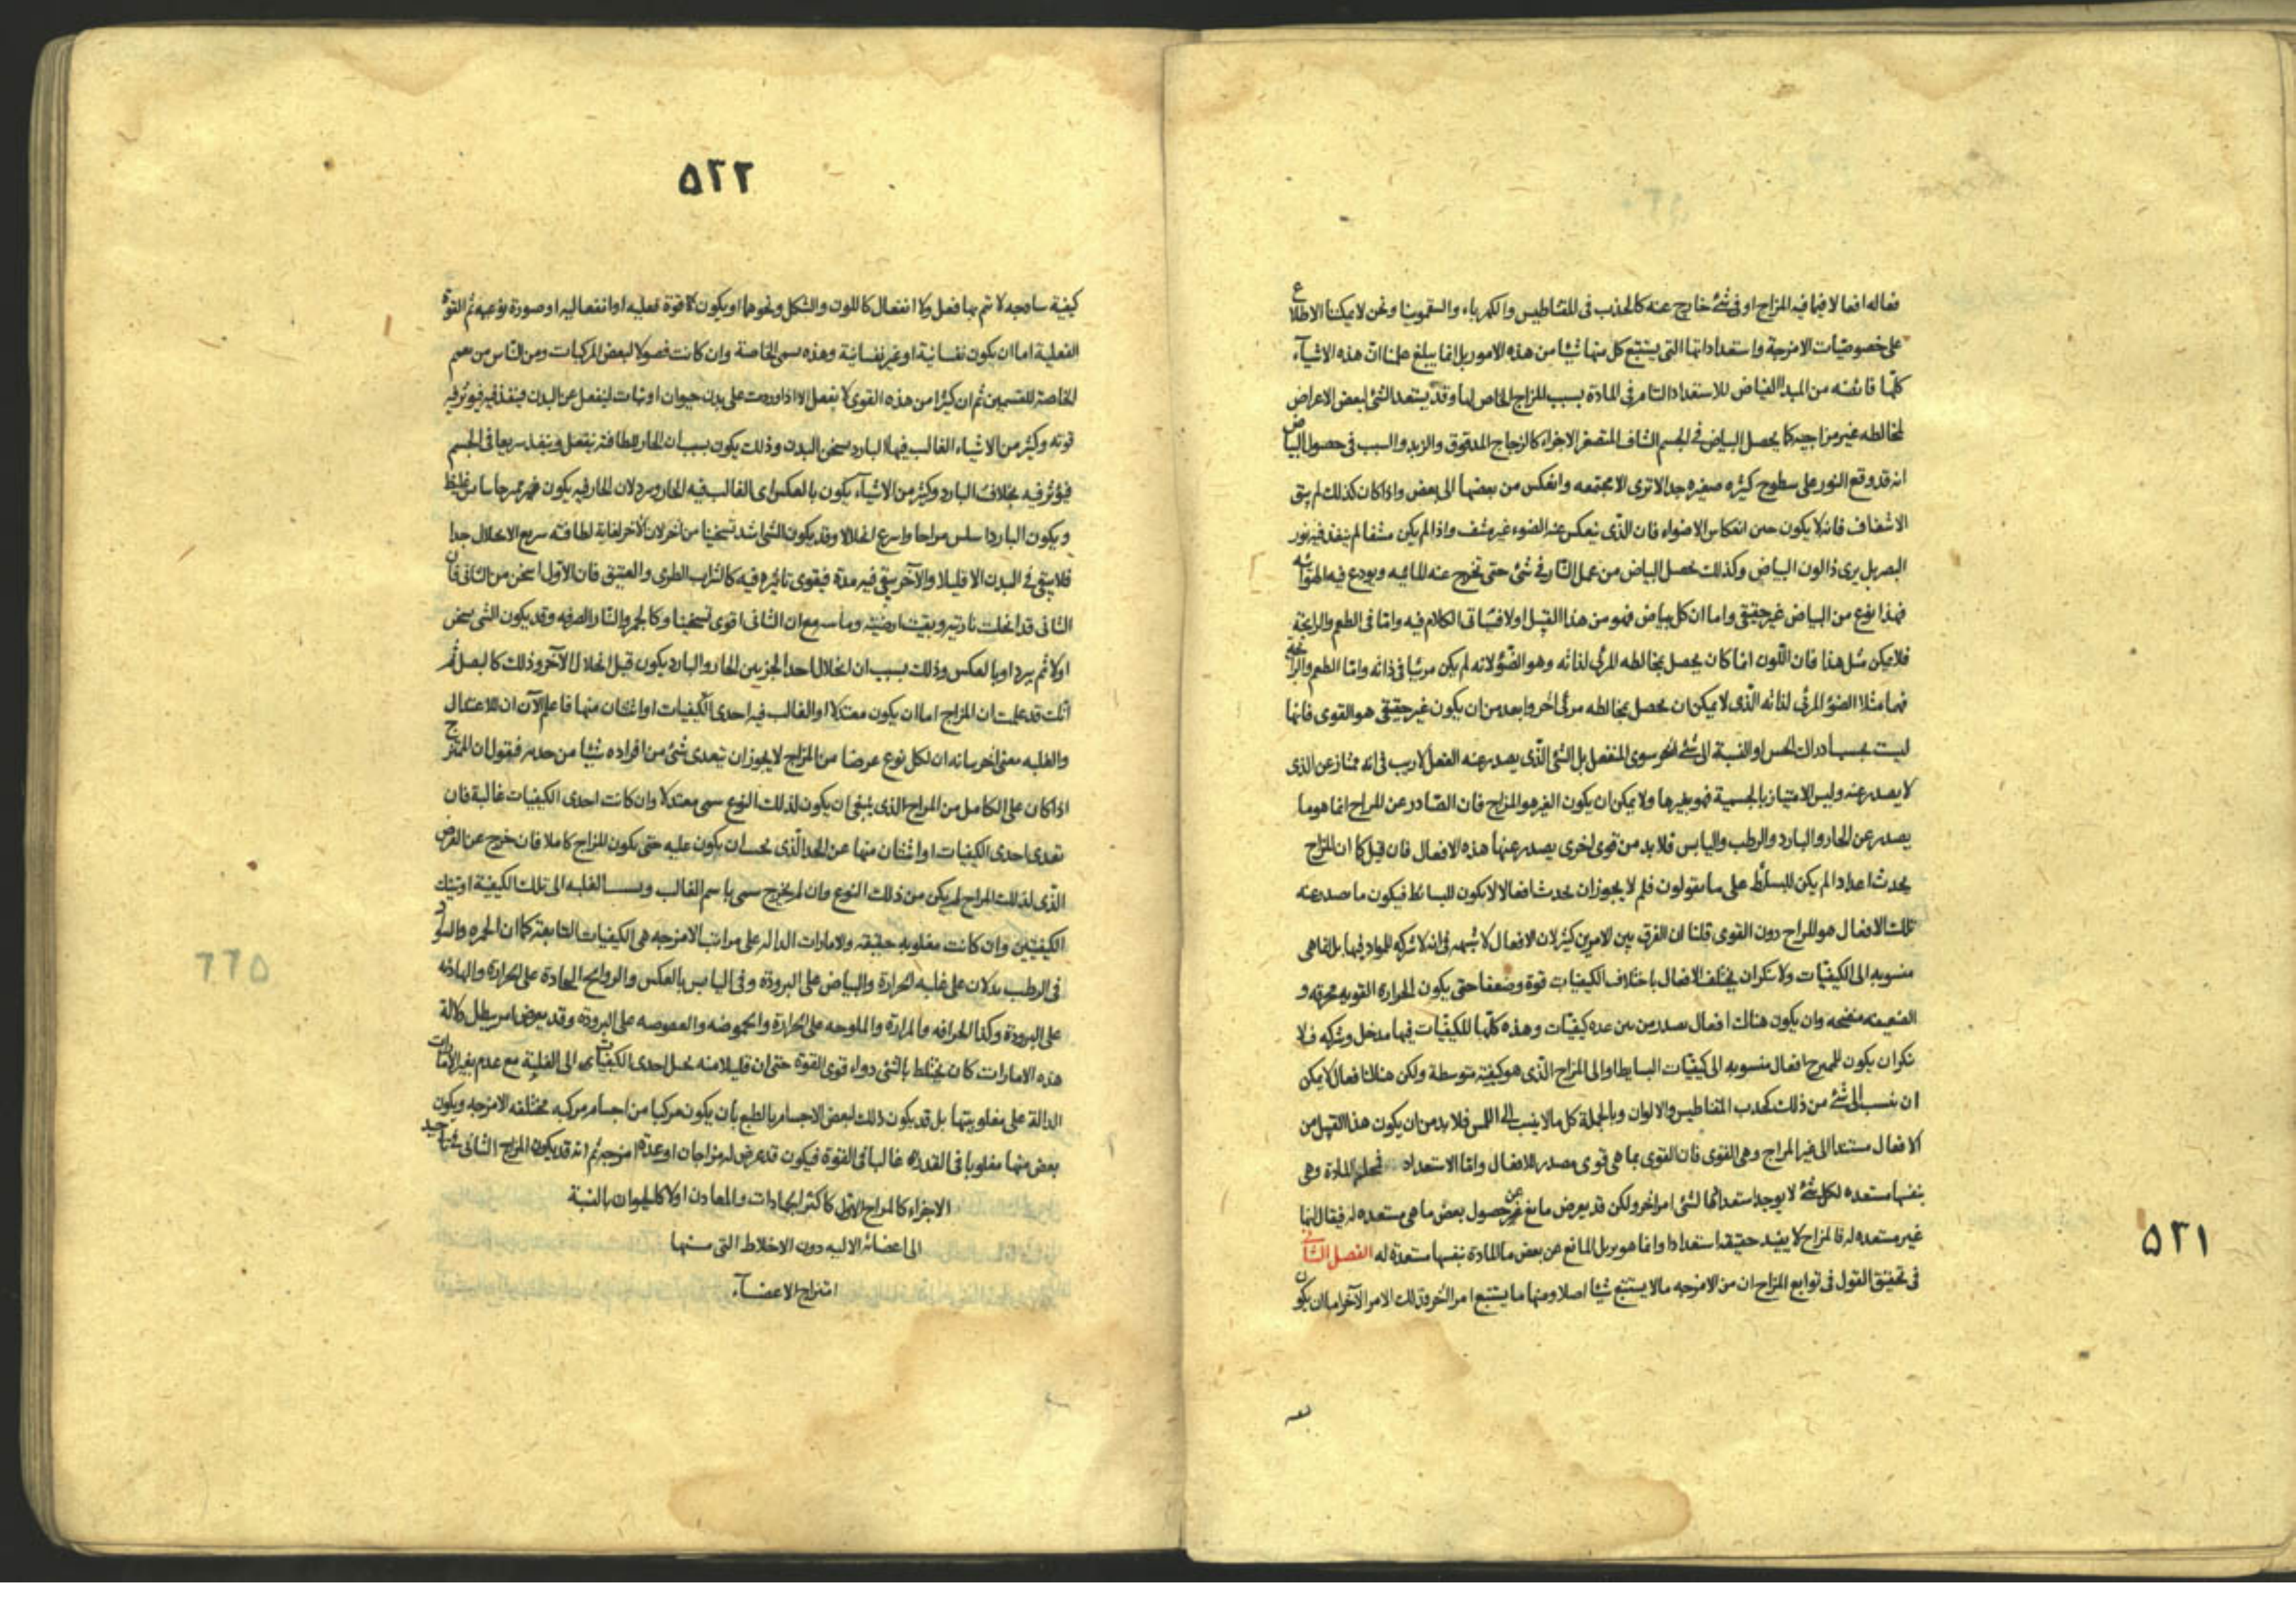 ٥٢١
فعاله افعالا فيما فيه المزاج او فى شئ خارج عنه كالجذب فى المغناطيس والكهرباء والسقمونيا ونحن لا يمكننا الاطلاع
على خصوصيّات الامزجة واستعداداتها التى يستتبع كل منها شيئا من هذه الامور بل انما يبلغ علمنا انّ هذه الاشيآء
كلّها فائضه من المبدا الفياض للاستعداد التام فى المادة بسبب المزاج الخاص لها وقد يستعد الشئ لبعض الاعراض
لمخالطه غير مزاجيه كما يحصل البياض فى الجسم الشاف المتصغر الاجزاء كالزجاج المدقوق والزبد والسبب فى حصول البياض
انه قد وقع النور على سطوح كثيره صغيره جدا لا ترى الا مجتمعه وانعكس من بعضها الى بعض واذا كان كذلك لم يبق
الاشفاف فانه لا يكون حين انعكاس الاضواء فان الذى ينعكس عنه الضوء غير مشف واذا لم يكن مشفا لم ينفذ فيه نور
البصر بل يرى ذا لون البياض وكذلك يحصل البياض من عمل النار فى شئ حتى تخرج عنه المائيه ويودع فيه الهوائيه
فهذا نوع من البياض غير حقيقى واما ان كل بياض فهو من هذا القبيل اولا فسياق الكلام فيه وامّا فى الطعم والرايحة
فلا يمكن مثل هذا فان اللّون انما كان يحصل بمخالطه المرئى لذاته وهو الضوٴ لانه لم يكن مرئيا فى ذاته وامّا الطعم والرائحة
فهما مثلا الضوٴ المرئى لذاته الذى لا يمكن ان يحصل بمخالطه مرئى آخر وابعد من ان يكون غير حقيقى هو القوى فانها
ليست بحسب ادراك الحس او النسبة الى شئ آخر سوى المنفعل بل الشئ الّذى يصدر عنه الفعل لا ريب فى انه ممتاز عن الذى
لا يصدر عنه وليس الامتياز بالجسمية فهو بغيرها ولا يمكن ان يكون الغير هو المزاج فان الصّادر عن المزاج انما هو ما
يصدر عن الحار والبارد والرطب واليابس فلا بد من قوى اخرى يصدر عنها هذه الافعال فان قيل كما ان المزاج
يحدث اعدادا لم يكن للبسائط على ما يقولون فلم لا يجوز ان يحدث افعالا لا يكون للبسائط فيكون ما صدر عنه
تلك الافعال هو المزاج دون القوى قلنا ان الفرق بين الامرين كثير لان الافعال لا شبهه فى انه لا شركه للمواد فيها بل انما هى
منسوبه الى الكيفيّات ولا ننكر ان يختلف الافعال باختلاف الكيفيات قوة وضعفا حتى يكون الحراره القويه محرقه و
الضعيفه منضجه وان يكون هناك افعال يصدر من بين عده كيفيّات وهذه كلّها للكيفيّات فيها مدخل وشركه فلا
ننكر ان يكون للممتزج افعال منسوبه الى كيفيّات البسايط او الى المزاج الّذى هو كيفيّة متوسطة ولكن هناك افعال لا يمكن
ان ينسب الى شئ من ذلك كجذب المغناطيس والالوان وبالجملة كل ما لا ينسب الى اللمس فلا بد من ان يكون هذا القبيل من
الافعال مستندا الى غير المزاج وهى القوى فان القوى بما هى قوى مصدر للافعال وامّا الاستعداد المادة وهى
بنفسها مستعده لكل شئ لا يوجد استعدادها لشئ امر آخر ولكن قد يعرض مانع عن حصول بعض ما هى مستعده له فيقال انها
غير مستعده له فالمزاج لا يفيد حقيقه استعدادا وانما هو يزيل المانع عن بعض ما المادة بنفسها مستعدة له الفصل الثانى
فى تحقيق القول فى توابع المزاج ان من الامزجه ما لا يستتبع شيئا اصلا ومنها ما يستتبع امرا آخر وذلك الامر الآخر اما ان يكون
٥٢٢
كيفية ساذجه لا يتم بها فعل ولا انفعال كاللون والشكل ونحوها او يكون قوة فعليه او انفعاليه او صورة نوعيه ثم القوة
الفعلية اما ان يكون نفسانية او غير نفسانية وهذه يسمى الخاصة وان كانت فصولا لبعض المركبات ومن النّاس من يعم
الخاصة للقسمين ثم ان كثيرا من هذه القوى لا يفعل الا اذا وردت على بدن حيوان او نبات لينفعل عن البدن فينفذ فيه فيوثر فيه
قوته وكثير من الاشياء الغالب فيها البارد يسخن البدن وذلك يكون بسبب ان الحار للطافته ينفعل وينفذ سريعا فى الجسم
فيؤثر فيه بخلاف البارد وكثير من الاشيآء يكون بالعكس اى الغالب فيه الحار ويبرد لان الحار فيه يكون غليظ
ويكون البارد اسلس مزاجا واسرع انحلالا وقد يكون الشئ اشد تسخينا من آخر لان الآخر لغاية لطافته سريع الانحلال جدا
فلا يبقى فى البدن الا قليلا والآخر يبقى فيه مدة فيقوى تاثيره فيه كالشراب الطرى والعتيق فان الاوّل اسخن من الثانى فان
الثانى قد انحلت ناريته وبقيت ارضيته وما سمع ان الثانى اقوى تسخينا وكالجمر والنار الصرفه وقد يكون الشئ يسخن
اولا ثم يبرد او بالعكس وذلك بسبب ان انحلال احد الجزئين الحار والبارد يكون قبل انحلال الآخر وذلك كالبصل ثم
انّك قد علمت ان المزاج اما ان يكون معتدلا او الغالب فيه احدى الكيفيات او اثنتان منها فاعلم الآن ان للاعتدال
والغلبه معنى آخر بيانه ان لكل نوع عرضا من المزاج لا يجوز ان يتعدى شئ من افراده شيئا من حديه فيقول ان الممتزج
اذا كان على الكامل من المزاج الذى ينبغى ان يكون لذلك النوع سمى معتدلا وان كانت احدى الكيفيات غالبة فان
تعدى احدى الكيفيات او اثنتان منها عن الحد الّذى يجب ان يكون عليه حتى يكون المزاج كاملا فان خرج عن العرض
الّذى لذلك المزاج لم يكن من ذلك النوع وان لم يخرج سمى باسم الغالب الغلبه الى تلك الكيفية او تينك
الكيفيتين وان كانت مغلوبه حقيقه والامارات الداله على مراتب الامزجه هى الكيفيات التابعة كما ان الحمره والسواد
فى الرطب يدلان على غلبه الحرارة والبياض على البرودة وفى اليابس بالعكس والروايح الحادة على الحرارة والهادئه
على البرودة وكذا الحرافه والمرارة والملوحه على الحرارة والحموضه والعفوصه على البرودة وقد يعرض امر يبطل دلالة
هذه الامارات كان يختلط بالشئ دواء قوى القوة حتى ان قليلا منه يحيل احدى الكيفيات الى الغلبة مع عدم تغير الامارات
الدالة على مغلوبيتها بل قد يكون ذلك لبعض الاجسام بالطبع بان يكون مركبا من اجسام مركبه مختلفه الامزجه ويكون
بعض منها مغلوبا فى القدر غالبا فى القوة فيكون قد عرض له مزاجان او عدة امزجه ثم انه قد يكون المزاج الثانى
الاجزاء كالمزاج الاوّل كاكثر الجمادات والمعادن اولا كالحيوان بالنسبة
الى اعضائه الاليه دون الاخلاط التى منها
امتزاج الاعضآء